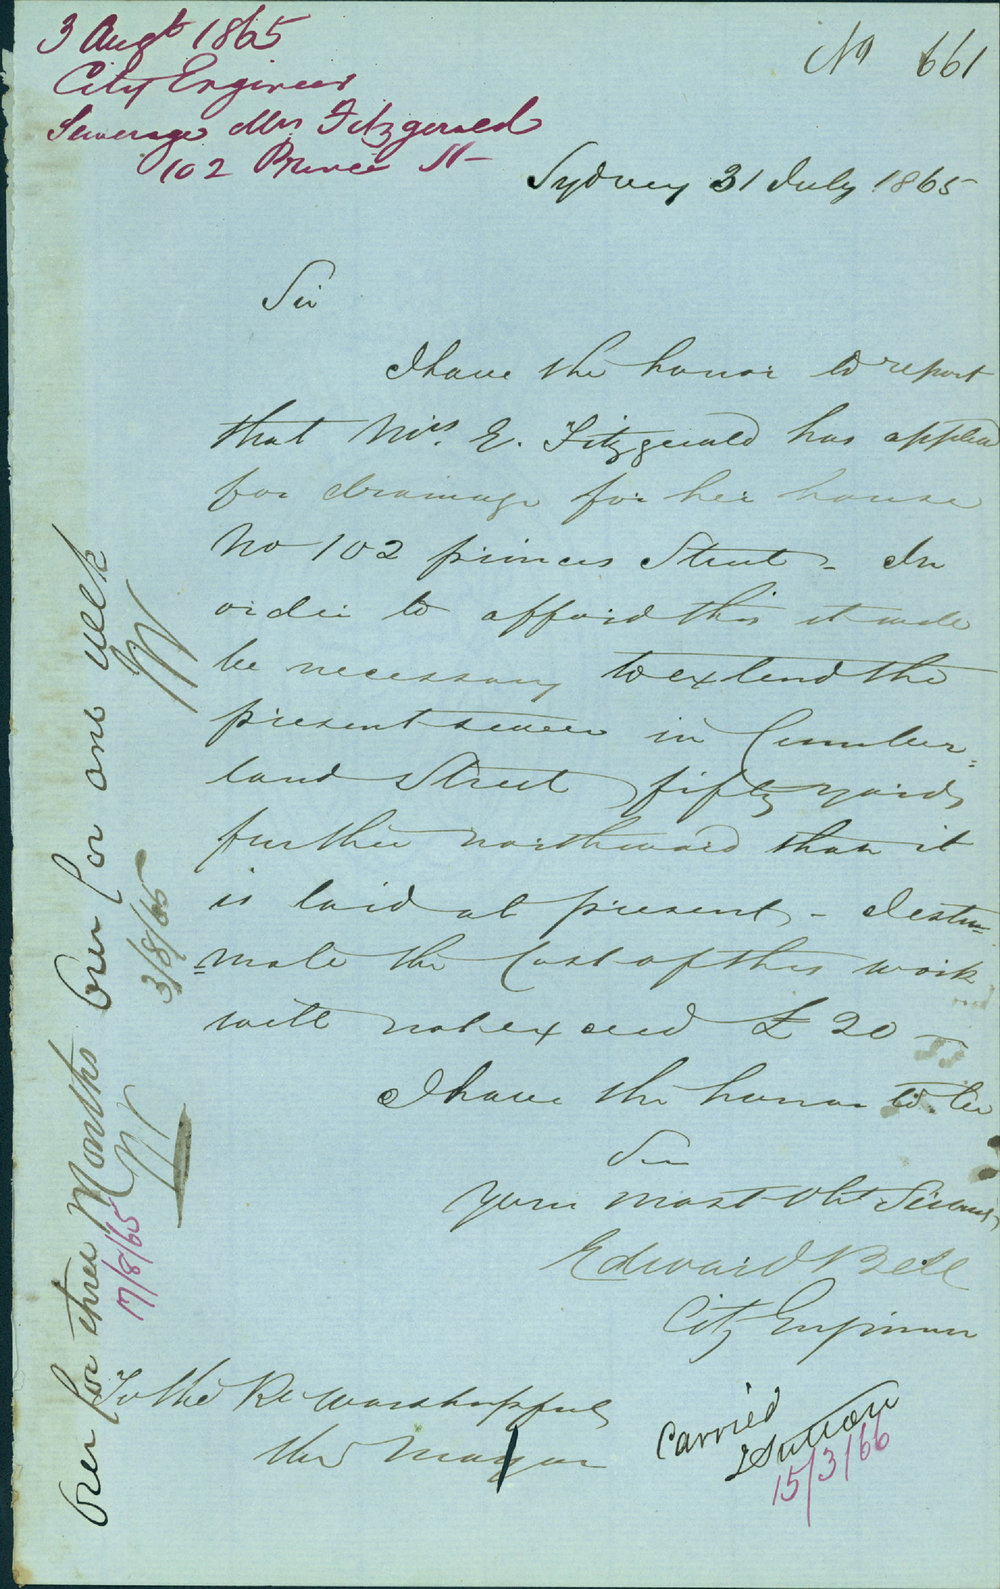 3 Augt 1865
City Engineer
Sewerage Mrs Fitzgerald
102 Prince St
No 661
Sydney 31 July 1865
Sir
I have the honor to report
that Mrs. E. Fitzgerald has applied
for drainage for her house
No 102 princes Street - In
order to afford this it will
be necessary to extend the
present sewer in Cumber=
land Street fifty yards
further northward than it
is laid at present, - I esti=
=mate the Cost of this work
will not exceed £20 -
I have the honor to be
Sir
Your most Obt Servant,
Edward Bell
City Engineer
To the Rt Worshipful
the Mayor
Carried
J Sutton
15/3/66
Over for one week
3/8/65
Over for three Months
17/8/65